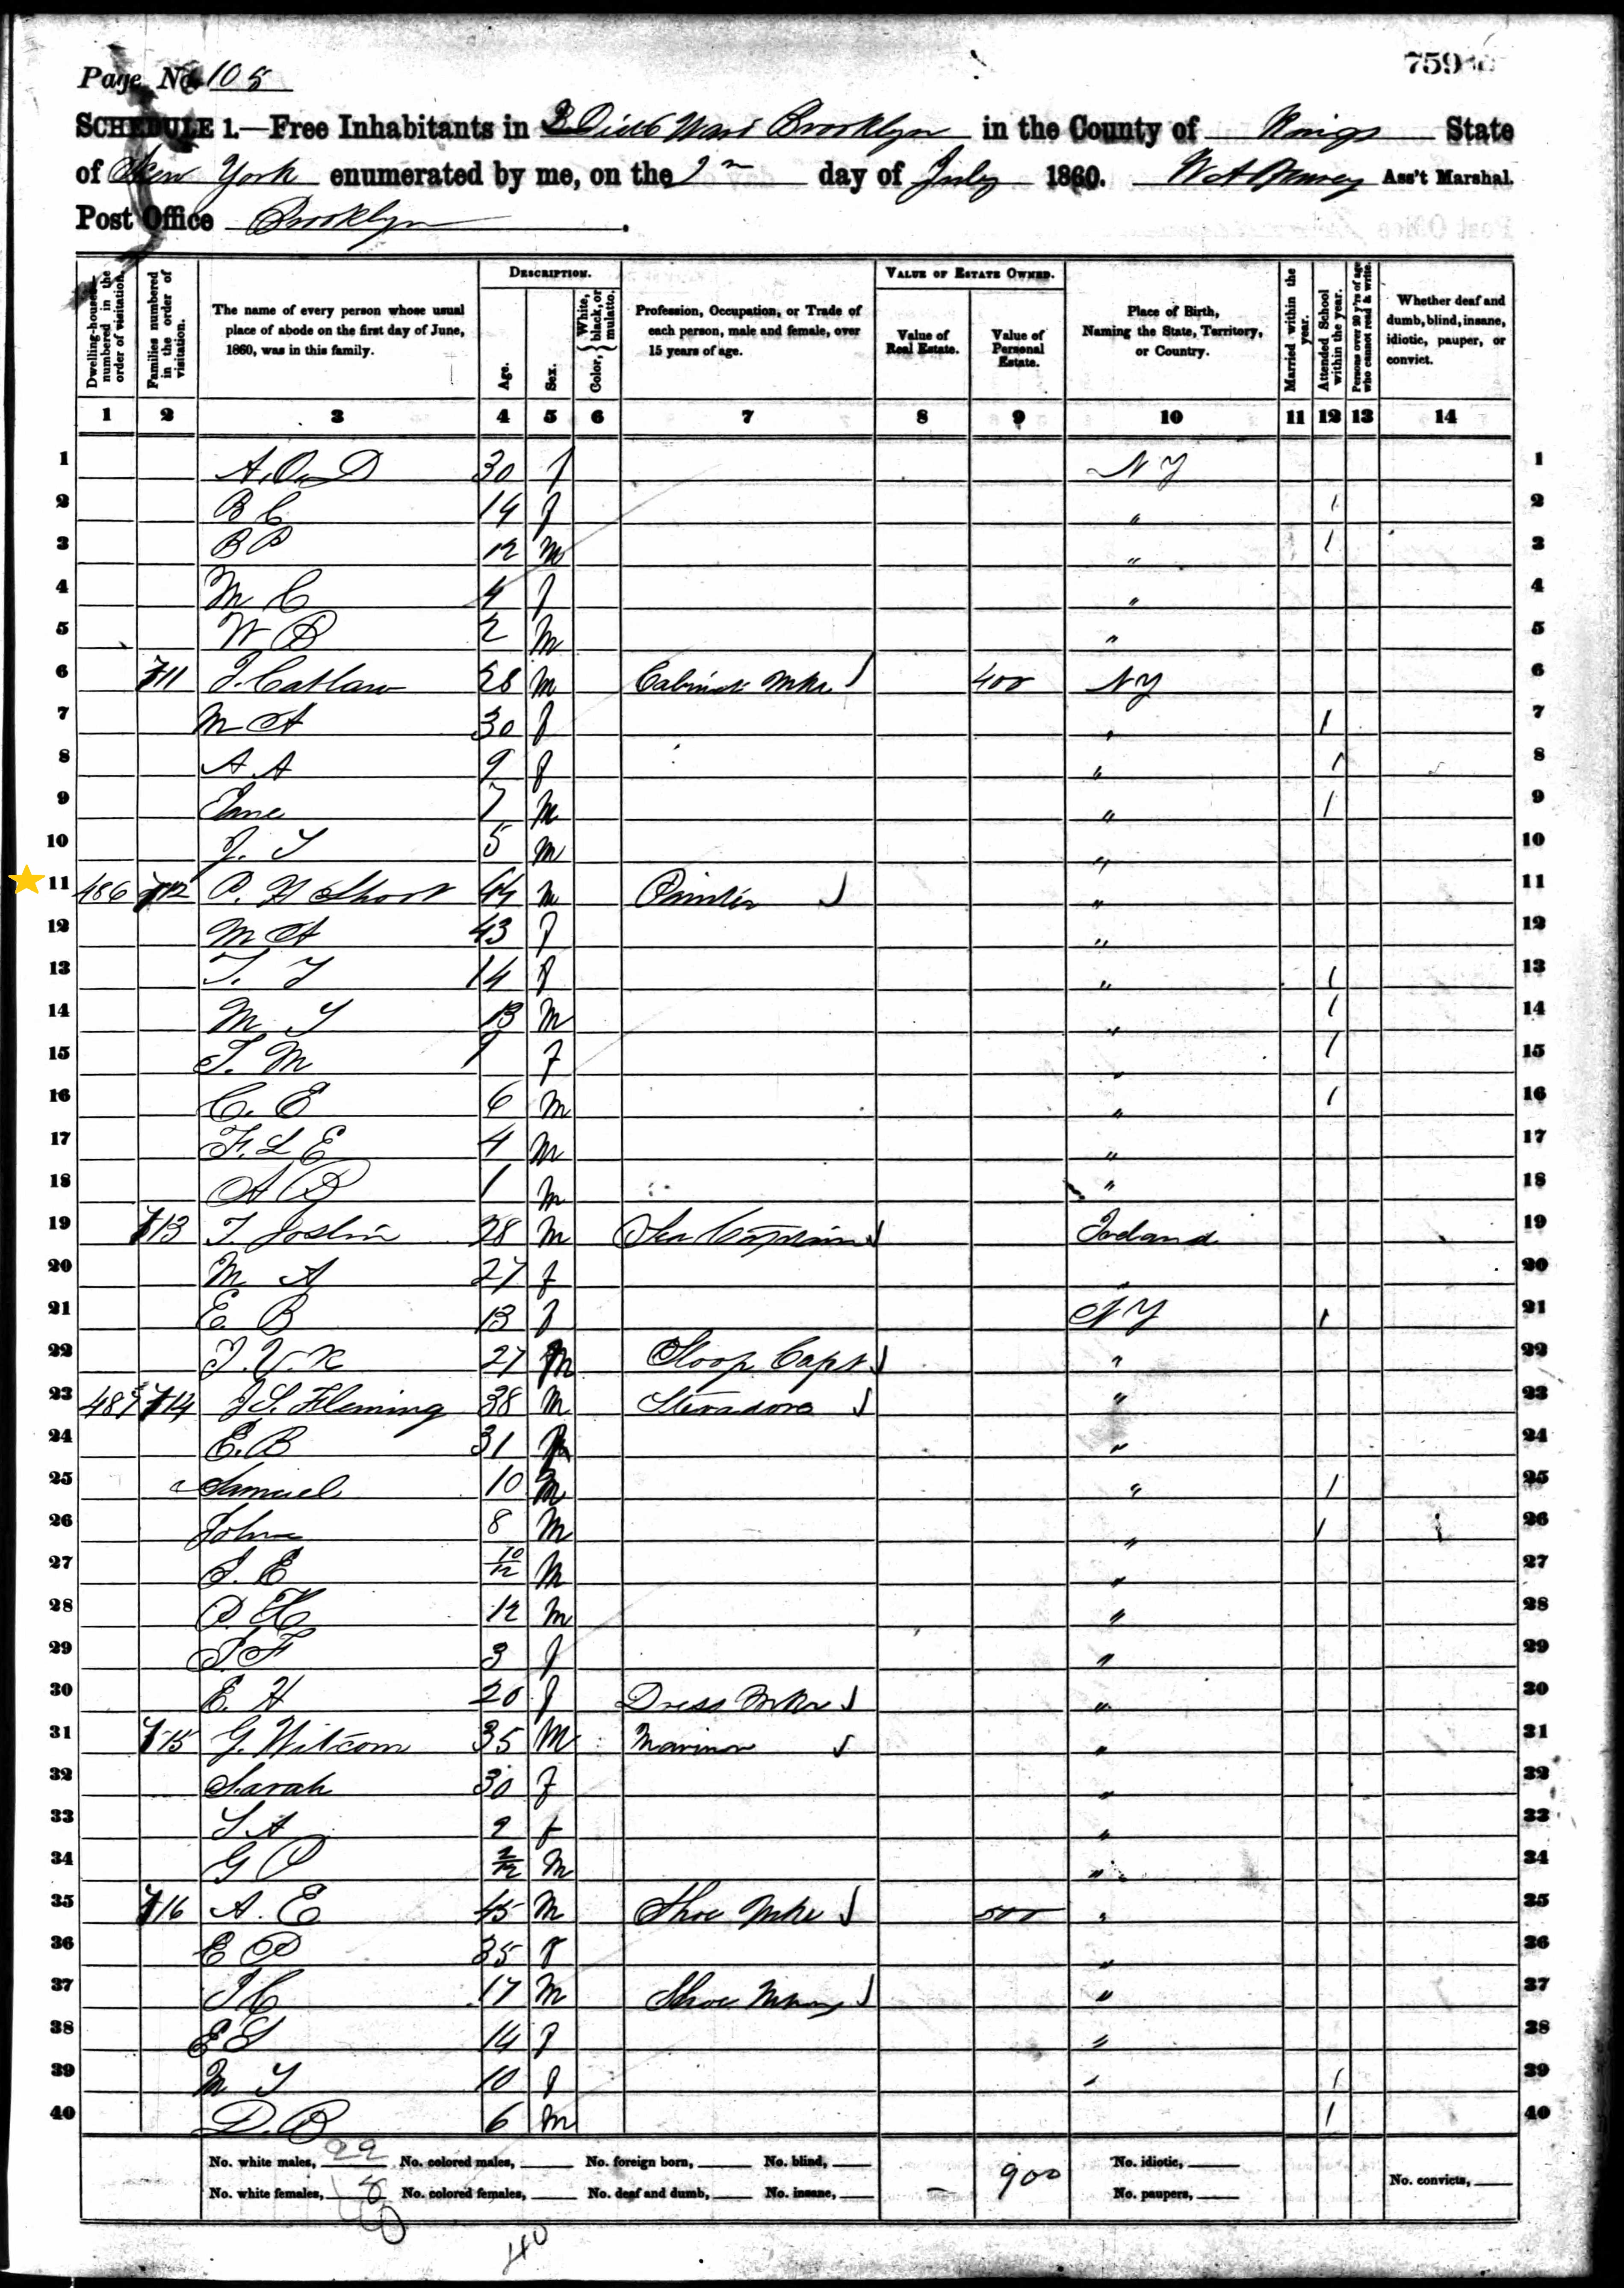 Page No. 105
759
SCHEDULE 1.—Free Inhabitants in Ward Brooklyn in the County of Kings State
of New York enumerated by me, on the 2 day of July 1860. Ass't Marshal.
Post Office Brooklyn.
Dwelling-houses numbered in the order of visitation.
Families numbered in the order of visitation.
The name of every person whose usual place of abode on the first day of June, 1860, was in this family.
DESCRIPTION.
Age.
Sex.
Color, { White, black, or mulatto.
Profession, Occupation, or Trade of each person, male and female, over 15 years of age.
VALUE OF ESTATE OWNED.
Value of Real Estate.
Value of Personal Estate.
Place of Birth, Naming the State, Territory, or Country.
Married within the year.
Attended School within the year.
Persons over 20 y'rs of age who cannot read & write.
Whether deaf and dumb, blind, insane, idiotic, pauper, or convict.
1 2 3 4 5 6 7 8 9 10 11 12 13 14
1 A. O. D 30 f N Y 1
2 B C 14 f " / 2
3 B P 12 m " / 3
4 M C 4 f " 4
5 W B 2 m " 5
6 711 T. Catlaw 28 m Cabinet Mkr 400 N Y 6
7 M A 30 f " / 7
8 A A 9 f " / 8
9 7 m " / 9
10 J. Y 5 m " 10
11 486 712 P. H Short 44 m " 11
12 M A 43 f " 12
13 T. Y 14 f " / 13
14 M Y 13 m " / 14
15 T. M f " / 15
16 C. E 6 m " / 16
17 F. L E 4 m " 17
18 A B 1 m " 18
19 713 T Joslin 28 m Sea Captain Ireland 19
20 M A 27 f " 20
21 E B 13 f N Y / 21
22 27 m Sloop Capt " 22
23 487 714 J S. Fleming 38 m Stevadore " 23
24 E. B 31 " 24
25 Samuel 10 m " / 25
26 John 8 m " / 26
27 S. E 10/12 m " 27
28 P. H 12 m " 28
29 S F 3 f " 29
30 E. H 20 f Dress Mkr " 30
31 715 G. Witcom 35 m Marinor " 31
32 Sarah 30 f " 32
33 S A 2 f " 33
34 G P 2/12 m " 34
35 716 A. E 45 m Shoe Mkr 500 " 35
36 E P 35 f " 36
37 J C 17 m Shoe " 37
38 E S 14 f " 38
39 M Y 10 f " / 39
40 D. B 6 m / 40
No. white males, 22 No. colored males, No. foreign born, No. blind, No. idiotic,
No. white females, 18 No. colored females, No. deaf and dumb, No. insane, — 900 No. paupers, No. convicts,
40